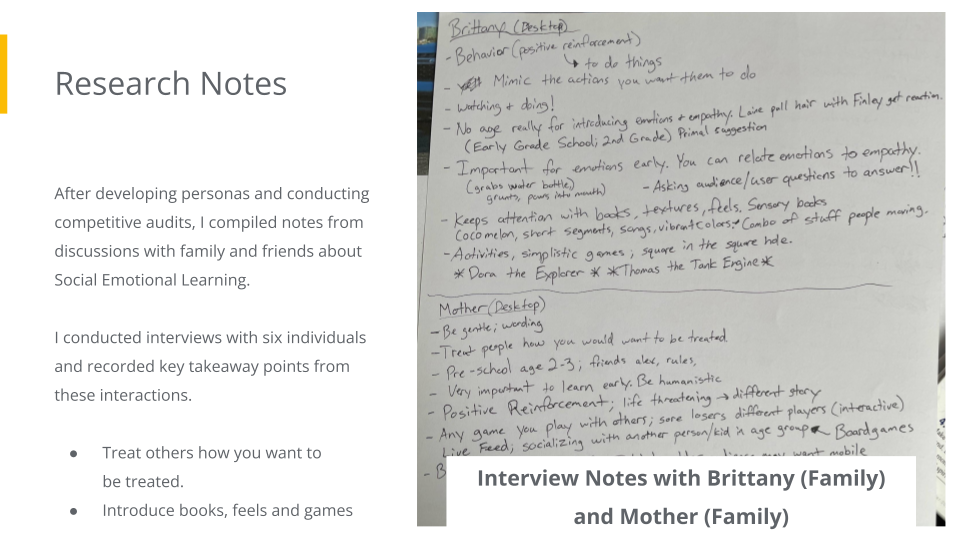 Research Notes
After developing personas and conducting
competitive audits, I compiled notes from
discussions with family and friends about
Social Emotional Learning.
I conducted interviews with six individuals
and recorded key takeaway points from
these interactions.
● Treat others how you want to
be treated.
● Introduce books, feels and games
Brittany (Desktop)
- Behavior (positive reinforcement)
↳ to do things
- Mimic the actions you want them to do
- watching + doing!
- No age really for introducing emotions + empathy. pull hair with Finley get reaction.
(Early Grade School; 2nd Grade) Primal suggestion
- Important for emotions early. You can relate emotions to empathy.
(grabs water bottle)
grunts, pours into mouth)
- Asking audience/user questions to answer!!
- Keeps attention with books, textures, feels. Sensory books
Cocomelon, short segments, songs, vibrant colors. Combo of stuff people moving.
- Activities, simplistic games; square in the square hole.
* Dora the Explorer * * Thomas the Tank Engine *
Mother (Desktop)
- Be gentle; wording
- Treat people how you would want to be treated
- Pre-school age 2-3; friends alex, rules,
- Very important to learn early. Be humanistic
- Positive Reinforcement; life threatening → different story
- Any game you play with others; sore losers different players (interactive)
Live Feed; socializing with another person/kid in age group Boardgames
- B want mobile
Interview Notes with Brittany (Family)
and Mother (Family)